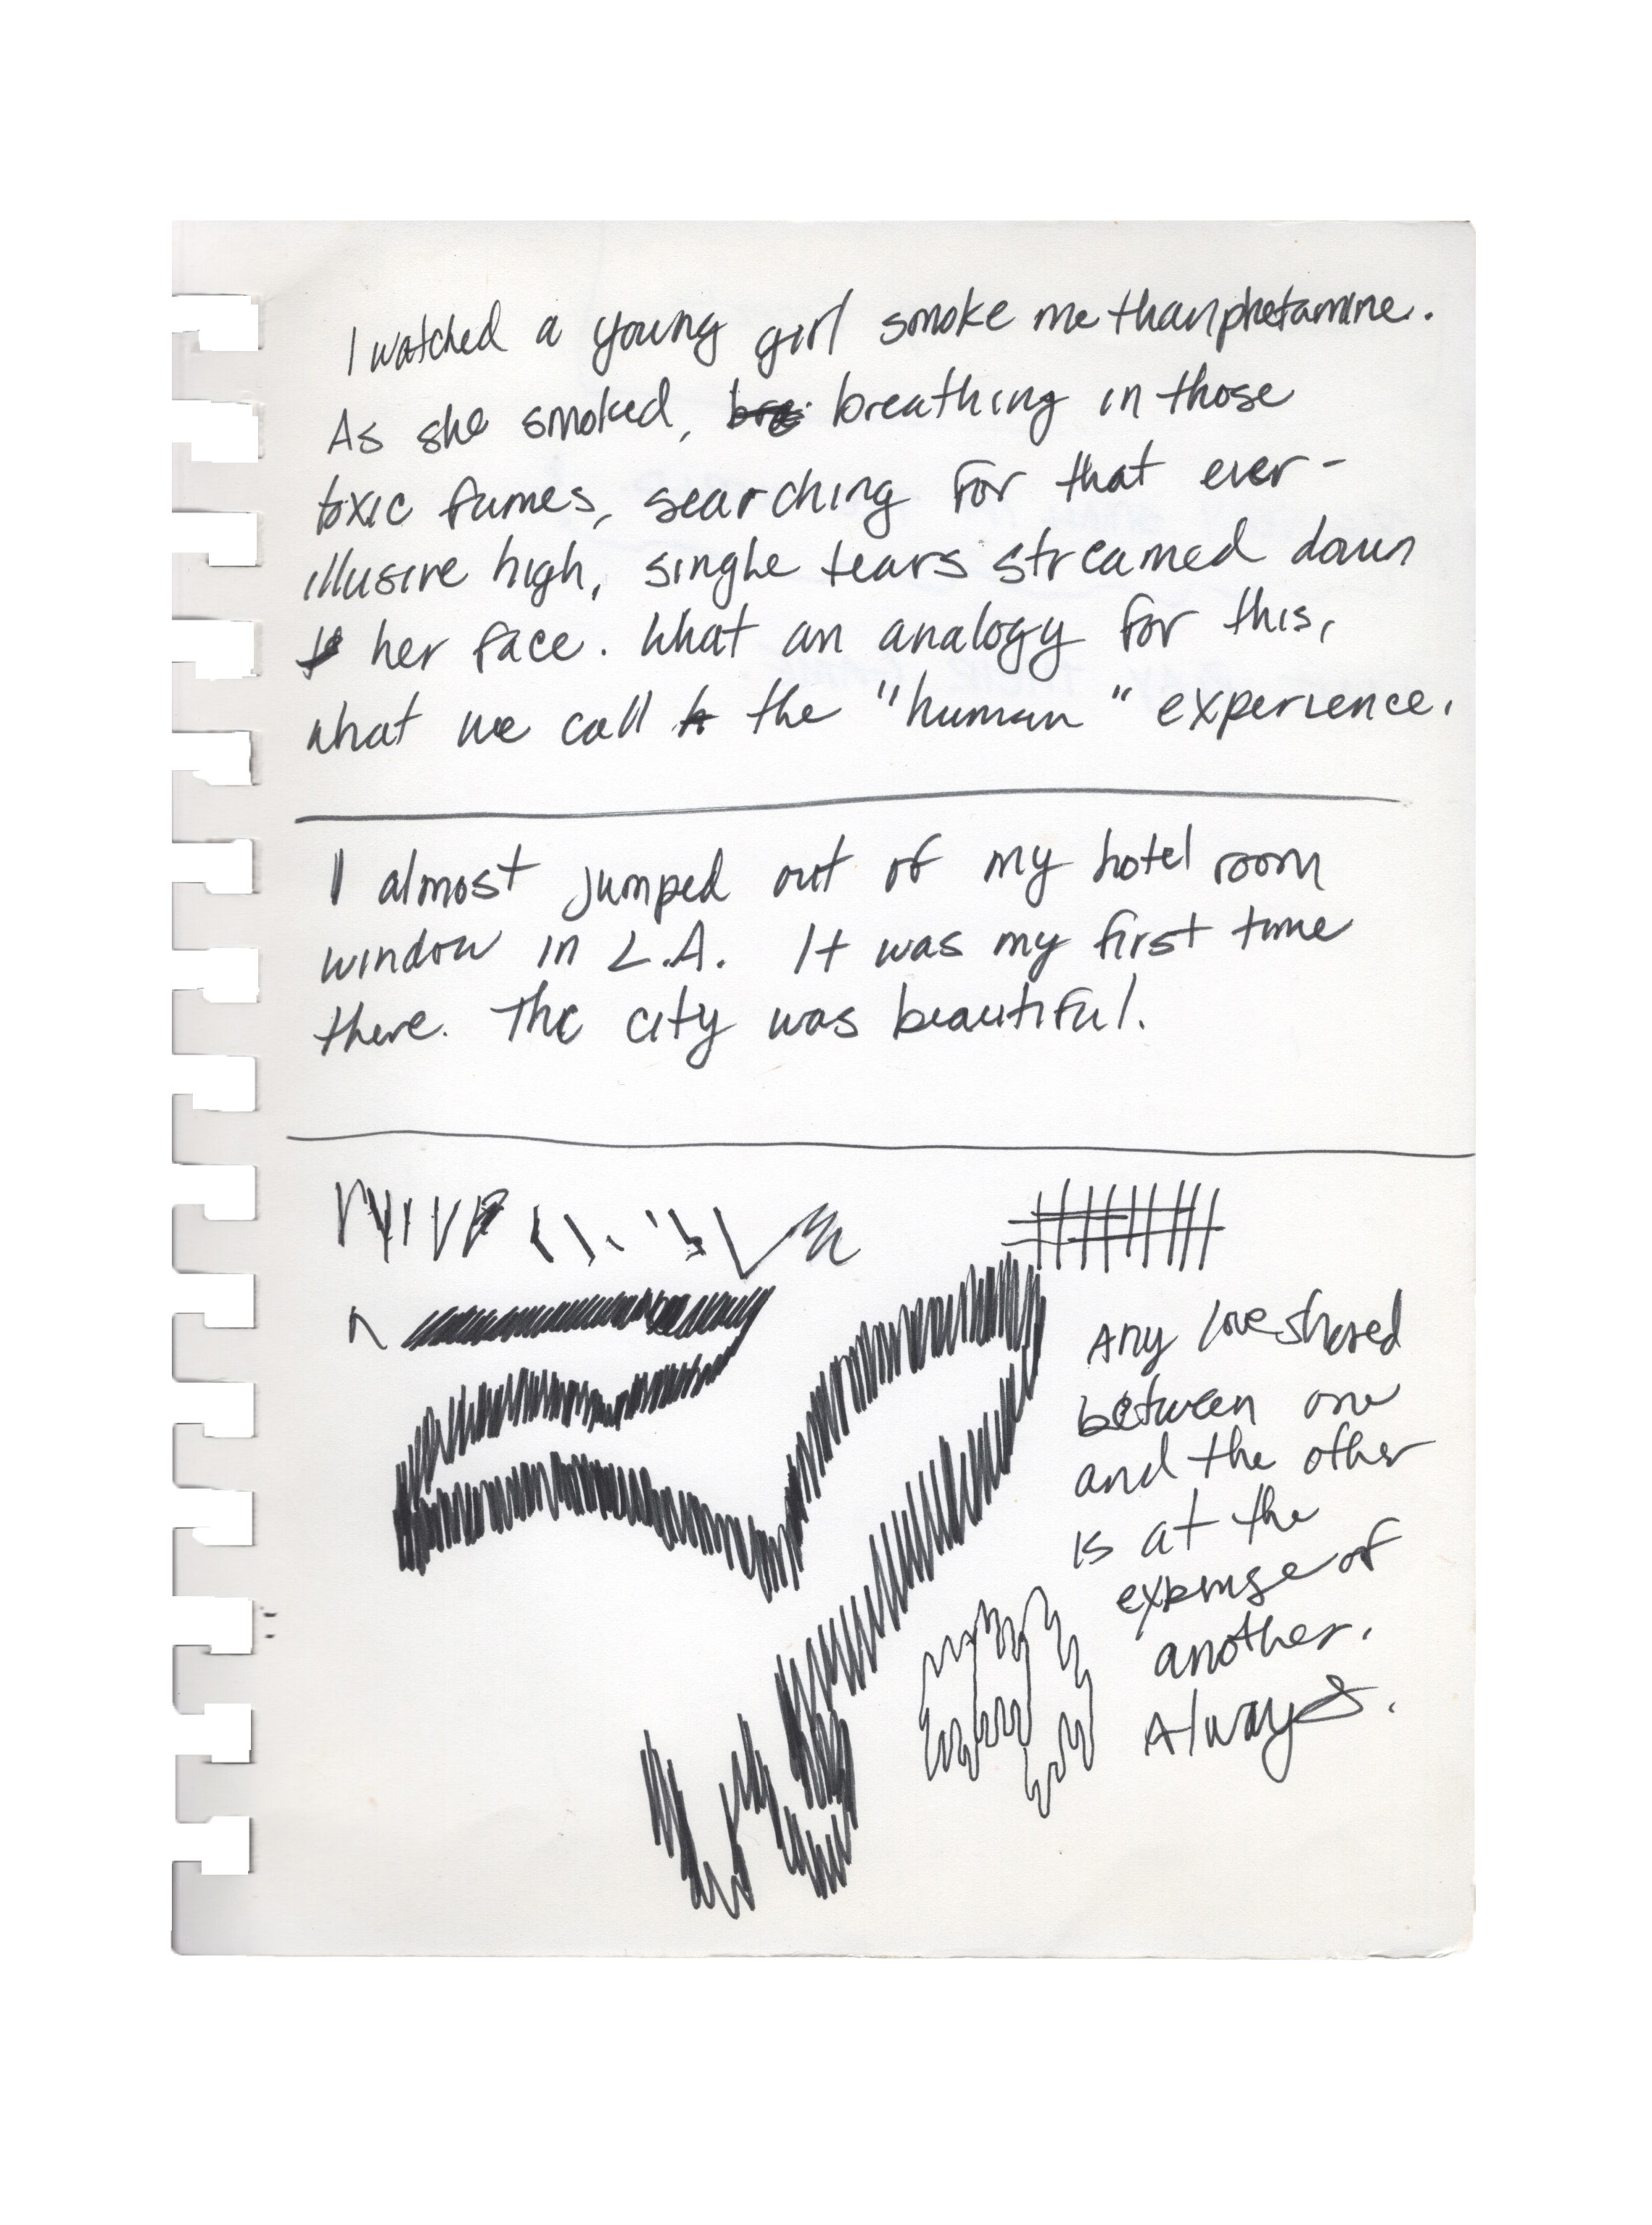 I watched a young girl smoke methanphetamine.
As she smoked, breathing in those
toxic fumes, searching for that ever-
illusive high, single tears streamed down
her face. What an analogy for this,
what we call the "human" experience.
I almost jumped out of my hotel room
window in L.A. It was my first time
there. The city was beautiful.
Any love shared
between one
and the other
is at the
expense of
another.
Always.